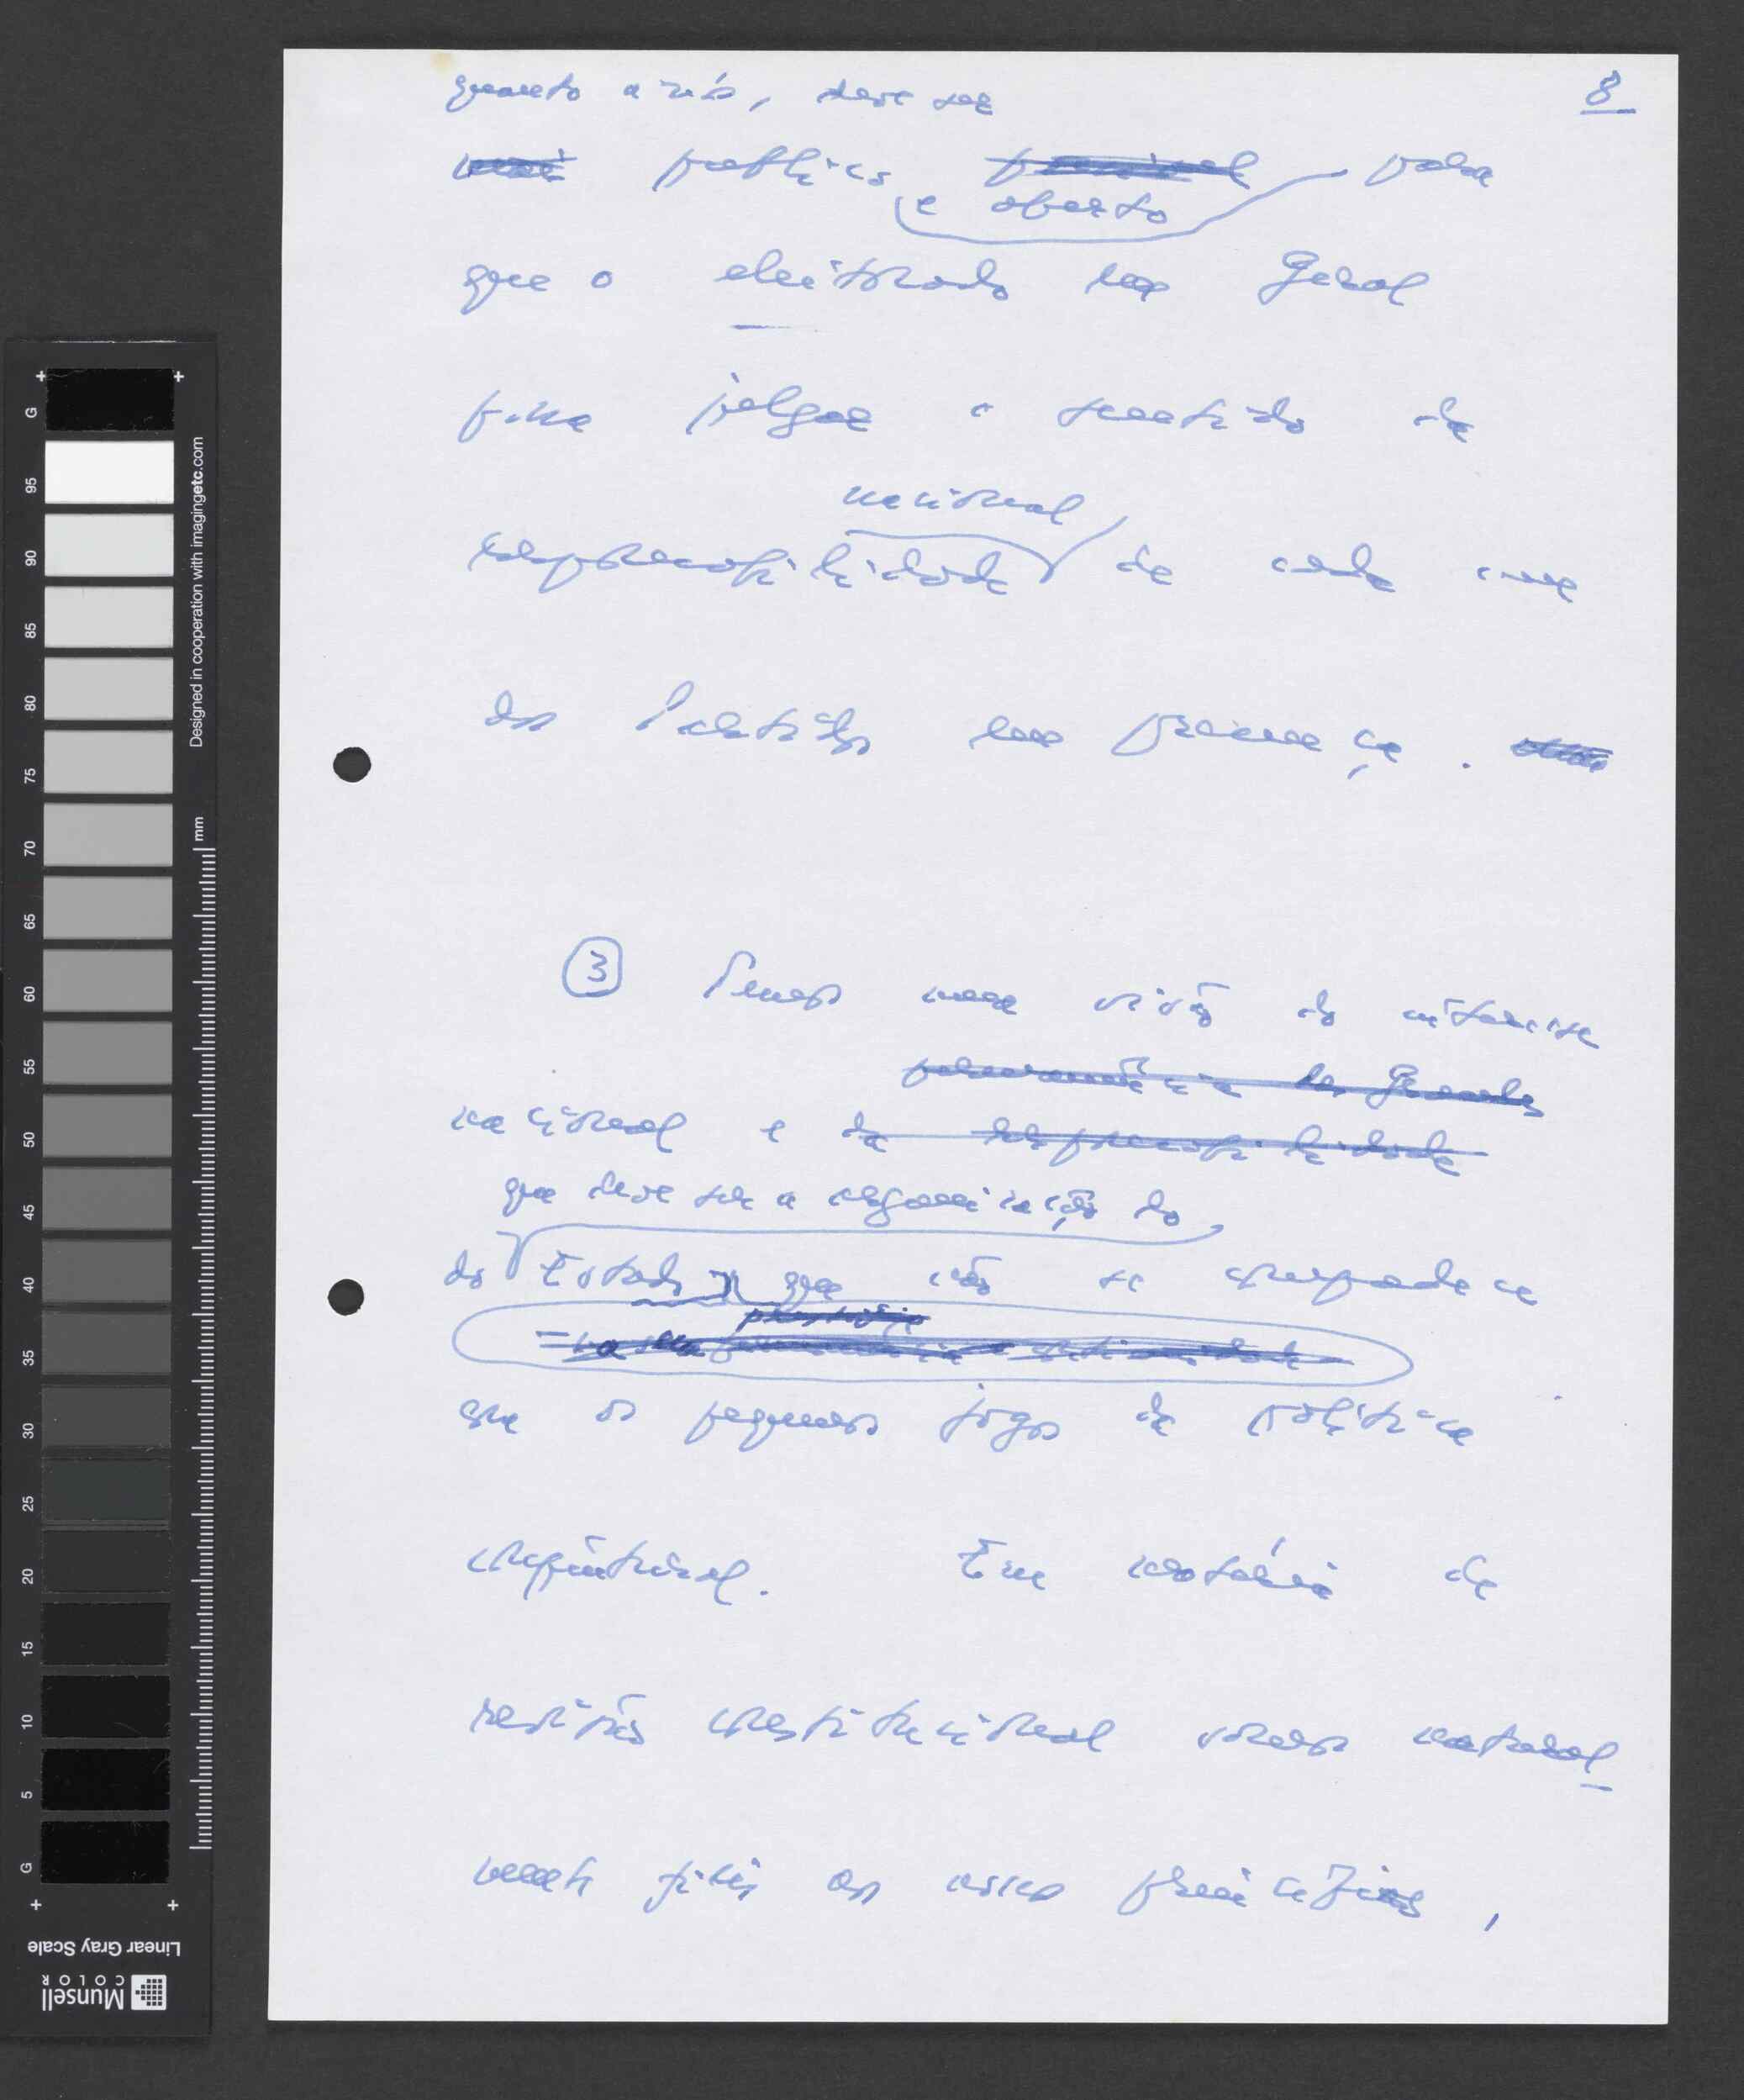 8
quanto a nós, deve ser
público para
e aberto
que o eleitorado em Geral
possa julgar o sentido da
nacional
responsabilidade de cada um
dos Partidos em presença.
③ Temos uma visão do interesse
permanência do Governo
nacional e da responsabilidade
que deve ser a organização do
do Estado que não se compadece
com os pequenos jogos da política
conjuntural. Em matéria de
revisão constitucional somos natural
mente fiéis aos nossos princípios,
Designed in cooperation with imagingetc.com
mm
G
95
90
85
80
75
70
65
60
55
50
45
40
35
30
25
20
15
10
5
G
Linear Gray Scale
Munsell
COLOR